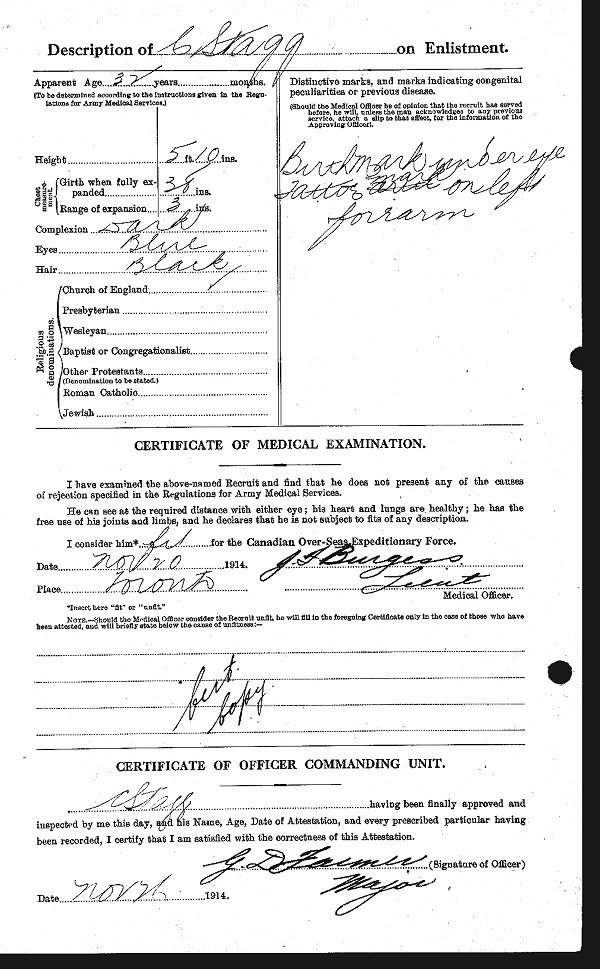 Description of C Stagg on Enlistment.
Apparent Age 32 years months.
(To be determined according to the instructions given in the Regu-
lations for Army Medical Services.)
Height 5 ft. 10 ins.
Chest measure-ment.
Girth when fully ex-
panded 38 ins.
Range of expansion 3 ins.
Complexion Dark
Eyes Blue
Hair Black
Religious denominations.
Church of England
Presbyterian
Wesleyan
Baptist or Congregationalist
Other Protestants
(Denomination to be stated.)
Roman Catholic
Jewish
Distinctive marks, and marks indicating congenital
peculiarities or previous disease.
(Should the Medical Officer be of opinion that the recruit has served
before, he will, unless the man acknowledges to any previous
service, attach a slip to that effect, for the information of the
Approving Officer).
Birthmark under eye
Tattoo mark on left
forearm
CERTIFICATE OF MEDICAL EXAMINATION.
I have examined the above-named Recruit and find that he does not present any of the causes
of rejection specified in the Regulations for Army Medical Services.
He can see at the required distance with either eye; his heart and lungs are healthy; he has the
free use of his joints and limbs, and he declares that he is not subject to fits of any description.
I consider him* fit for the Canadian Over-Seas Expeditionary Force.
Date Nov 20 1914. J F Burgess
Place Toronto Lieut
Medical Officer.
*Insert here "fit" or "unfit."
NOTE.—Should the Medical Officer consider the Recruit unfit, he will fill in the foregoing Certificate only in the case of those who have
been attested, and will briefly state below the cause of unfitness:—
Cert.
Copy.
CERTIFICATE OF OFFICER COMMANDING UNIT.
C Stagg having been finally approved and
inspected by me this day, and his Name, Age, Date of Attestation, and every prescribed particular having
been recorded, I certify that I am satisfied with the correctness of this Attestation.
G. D. Farmer (Signature of Officer)
Major
Date Nov 1914.